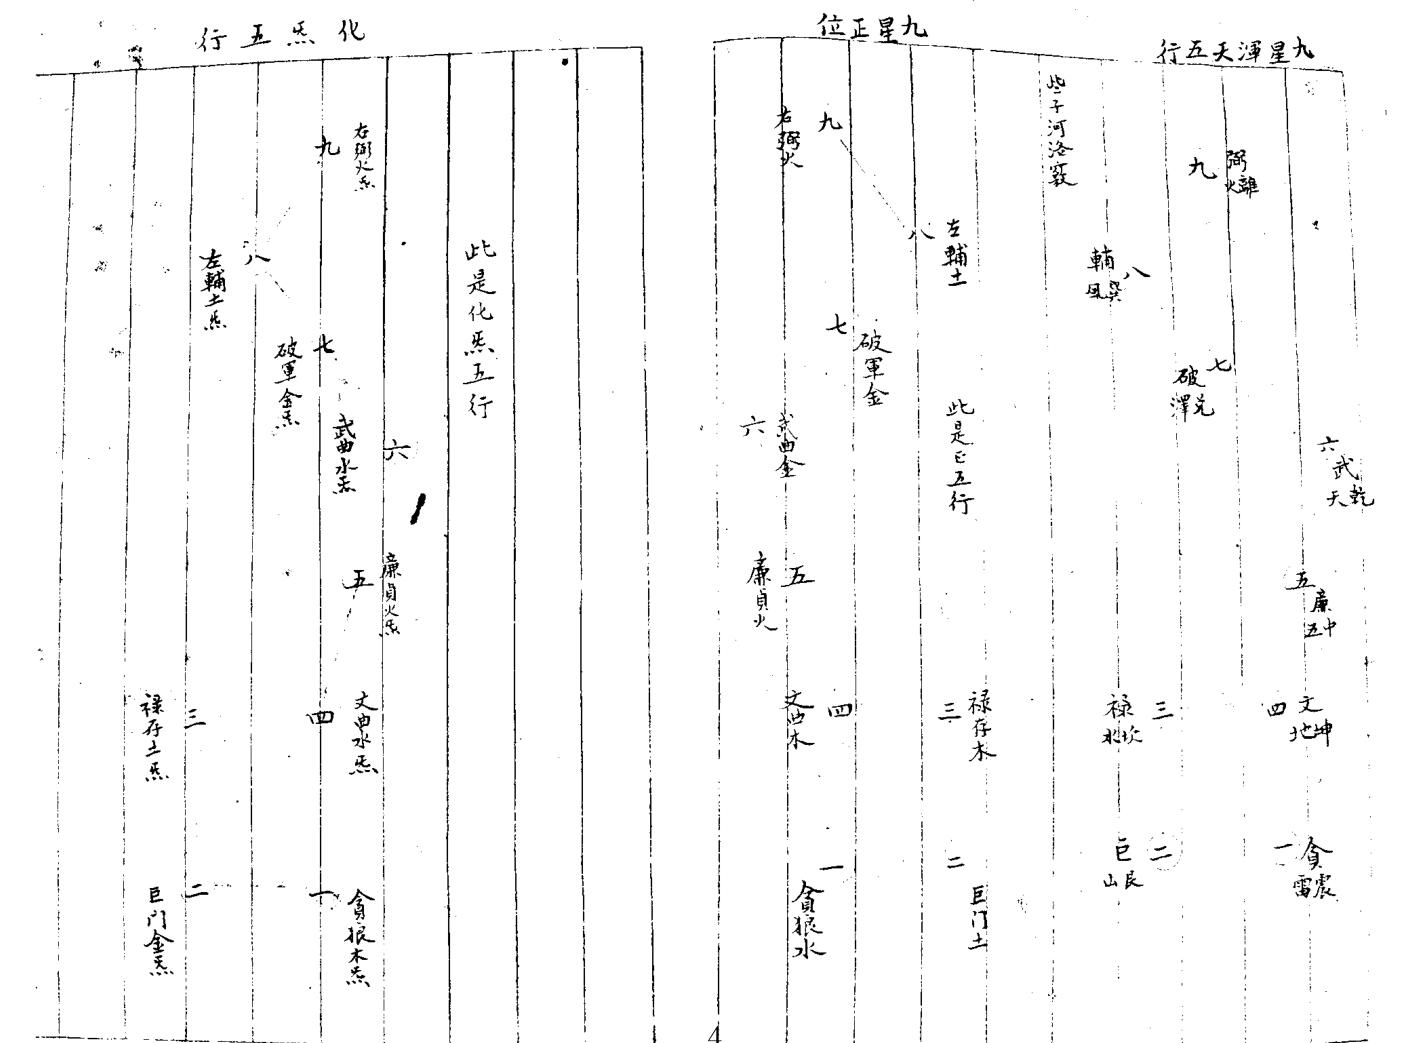 九星渾天五行
九
弼
火離
八
輔
風巽
七
破
澤兌
六
武
天乾
五
廉
五中
四
文
地坤
三
禄
水坎
二
巨
山艮
一
貪
雷震
些子河洛竅
九星正位
九
右弼火
八
左輔土
七
破軍金
六
武曲金
五
廉貞火
四
文曲木
三
禄存木
二
巨门土
一
貪狼水
此是正五行
4
化炁五行
此是化炁五行
九
右弼火炁
八
左輔土炁
七
破軍金炁
六
武曲水炁
五
廉貞火炁
四
文曲水炁
三
禄存土炁
二
巨门金炁
一
貪狼木炁